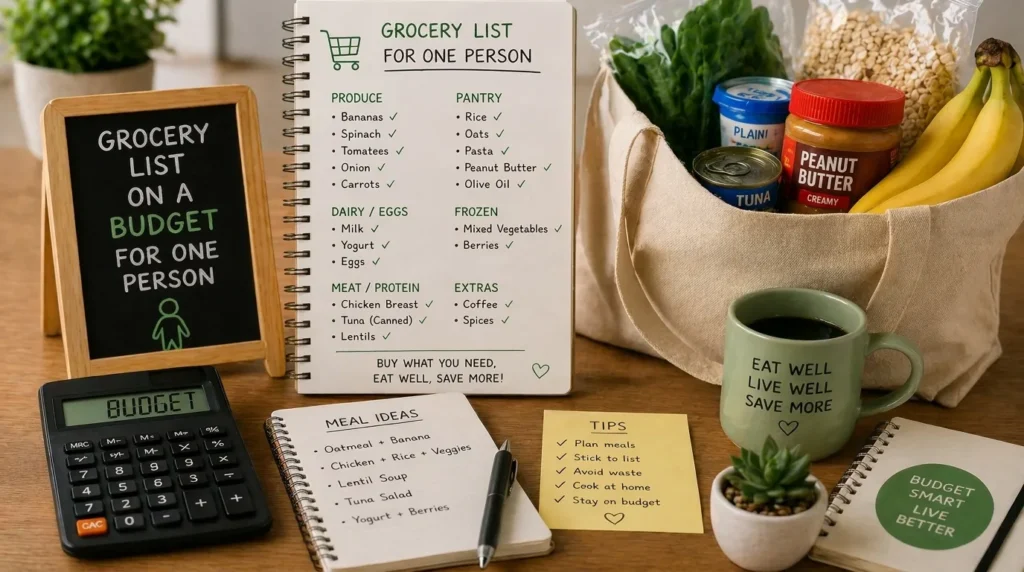 GROCERY
LIST
ON A
BUDGET
FOR ONE
PERSON
GROCERY LIST
FOR ONE PERSON
PRODUCE
• Bananas ✓
• Spinach ✓
• Tomatees ✓
• Onion ✓
• Carrots ✓
DAIRY / EGGS
• Milk ✓
• Yogurt ✓
• Eggs ✓
MEAT / PROTEIN
• Chicken Breast ✓
• Tuna (Canned) ✓
• Lentils ✓
PANTRY
• Rice ✓
• Oats ✓
• Pasta ✓
• Peanut Butter ✓
• Olive Oil ✓
FROZEN
• Mixed Vegetables ✓
• Berries ✓
EXTRAS
• Coffee ✓
• Spices ✓
BUY WHAT YOU NEED,
EAT WELL, SAVE MORE!
PLAIN
TUNA
PEANUT
BUTTER
CREAMY
EAT WELL
LIVE WELL
SAVE MORE
BUDGET
MEAL IDEAS
• Oatmeal + Banana
• Chicken + Rice + Veggies
• Lentil Soup
• Tuna Salad
• Yogurt + Berries
TIPS
✓ Plan meals
✓ Stick to list
✓ Avoid waste
✓ Cook at home
✓ Stay on budget
BUDGET
SMART
LIVE
BETTER